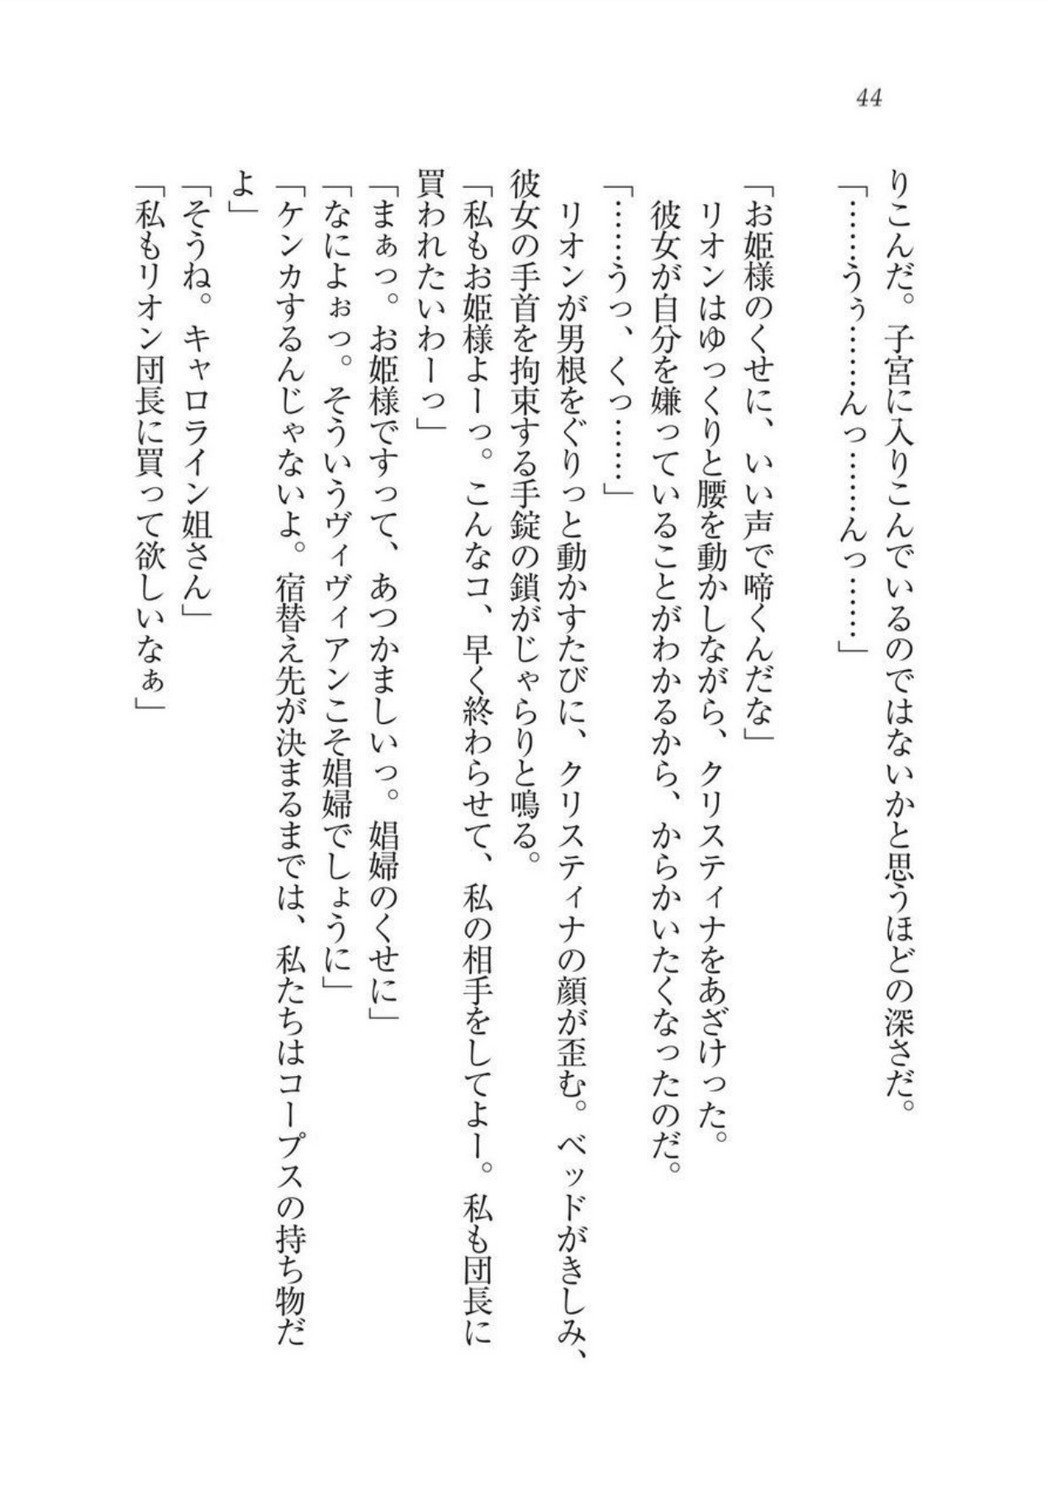 44
りこんだ。子宮に入りこんでいるのではないかと思うほどの深さだ。
「……うぅ……んっ……んっ……」
「お姫様のくせに、いい声で啼くんだな」
リオンはゆっくりと腰を動かしながら、クリスティナをあざけった。
彼女が自分を嫌っていることがわかるから、からかいたくなったのだ。
「……うっ、くっ……」
リオンが男根をぐりっと動かすたびに、クリスティナの顔が歪む。ベッドがきしみ、
彼女の手首を拘束する手錠の鎖がじゃらりと鳴る。
「私もお姫様よーっ。こんなコ、早く終わらせて、私の相手をしてよー。私も団長に
買われたいわーっ」
「まぁっ。お姫様ですって、あつかましいっ。娼婦のくせに」
「なによぉっ。そういうヴィヴィアンこそ娼婦でしょうに」
「ケンカするんじゃないよ。宿替え先が決まるまでは、私たちはコープスの持ち物だ
よ」
「そうね。キャロライン姐さん」
「私もリオン団長に買って欲しいなぁ」